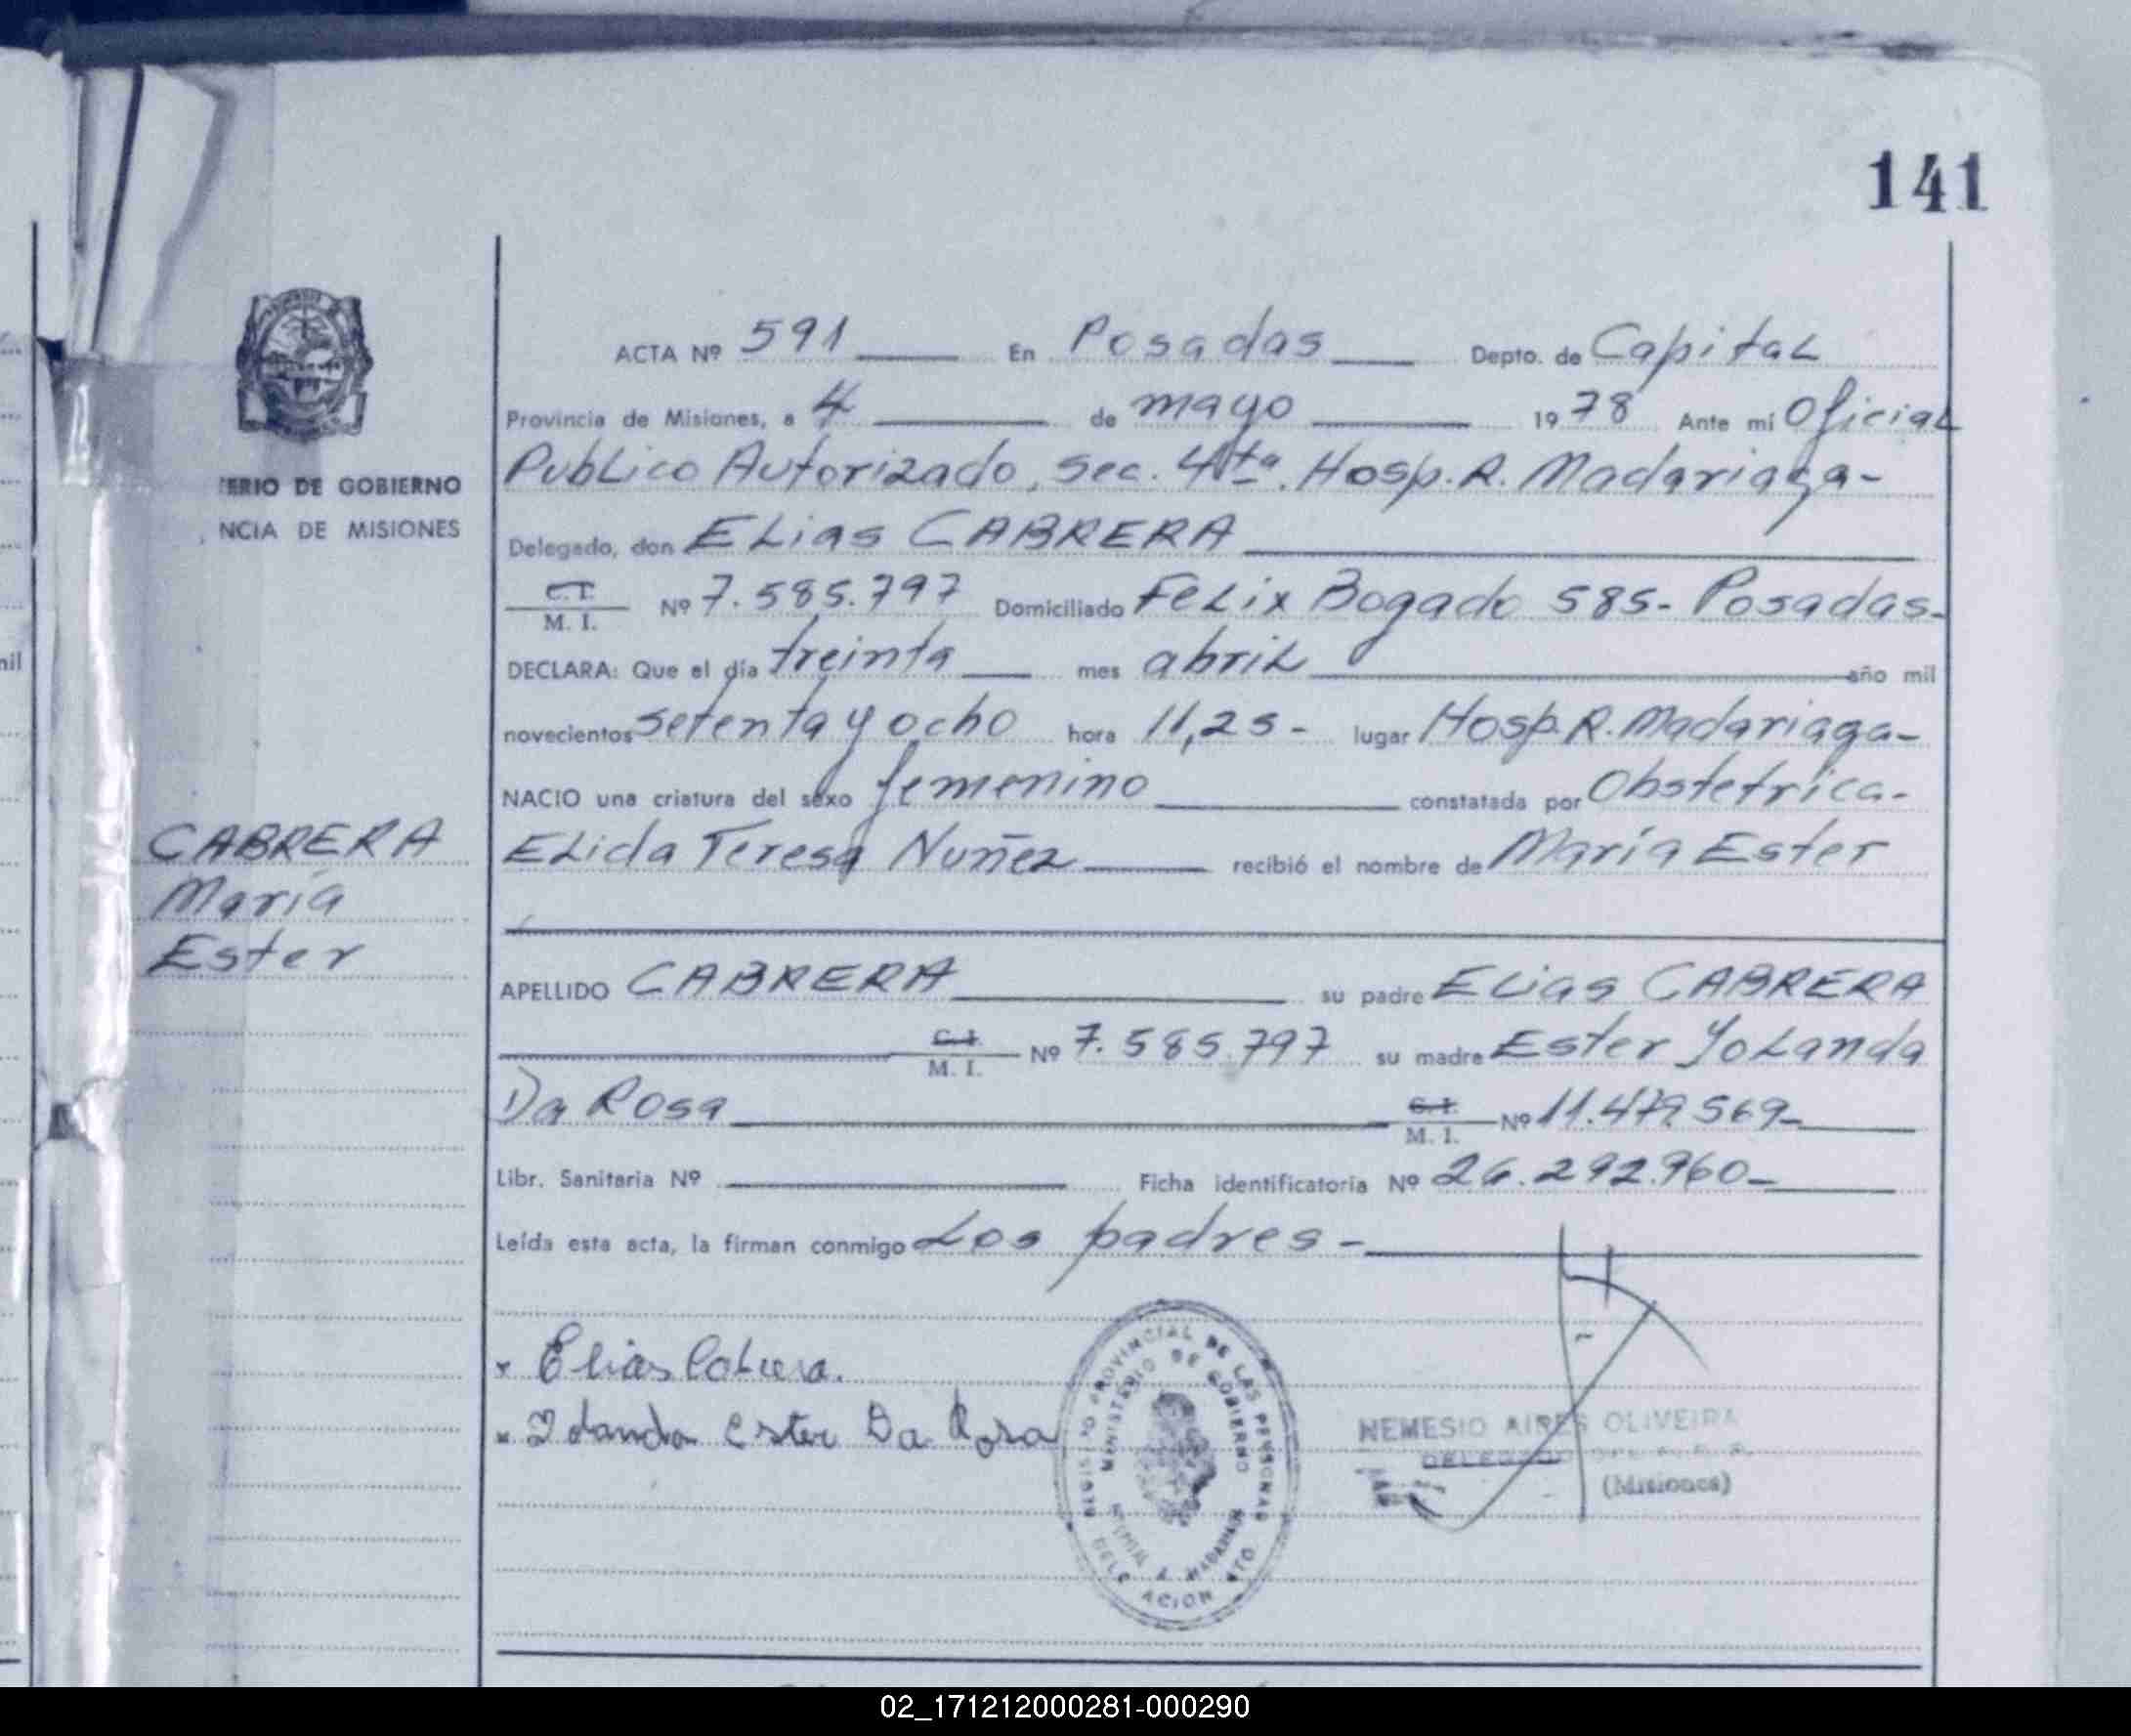 141
ACTA Nº 591 En Posadas Depto. de Capital
Provincia de Misiones, a 4 de mayo 1978 Ante mi Oficial
Publico Autorizado, Sec. 4ta. Hosp. R. Madariaga-
ERIO DE GOBIERNO
NCIA DE MISIONES
Delegado, don Elias CABRERA
C.I. M. I. Nº 7.585.797 Domiciliado Felix Bogado 585- Posadas-
DECLARA: Que el día treinta mes abril año mil
novecientos setenta y ocho hora 11,25- lugar Hosp. R. Madariaga-
NACIO una criatura del sexo femenino constatada por Obstetrica-
CABRERA
María
Ester
Elida Teresa Nuñez recibió el nombre de María Ester
APELLIDO CABRERA su padre Elias CABRERA
C.I. M. I. Nº 7.585.797 su madre Ester Yolanda
Da Rosa C.I. M. I. Nº 11.479.569-
Libr. Sanitaria Nº Ficha identificatoria Nº 26.292.960-
Leída esta acta, la firman conmigo Los padres-
Elias Cabrera.
Iolanda Ester Da Rosa
REGISTRO PROVINCIAL DE LAS PERSONAS
MINISTERIO DE GOBIERNO
DELEGACION
NEMESIO AIRES OLIVEIRA
DELEGADO
(Misiones)
mil
02_171212000281-000290